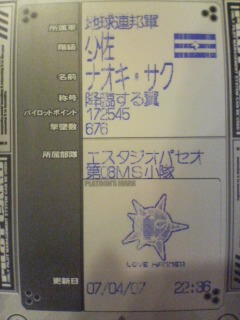 所属軍 地球連邦軍
階級 少佐
名前 ナオキ・サク
称号 降臨する翼
パイロットポイント 172545
撃墜数 676
所属部隊 エスタジオパセオ
第08MS小隊
PLATOON'S MARK
LOVE HAMMER
更新日 07/04/07 22:36